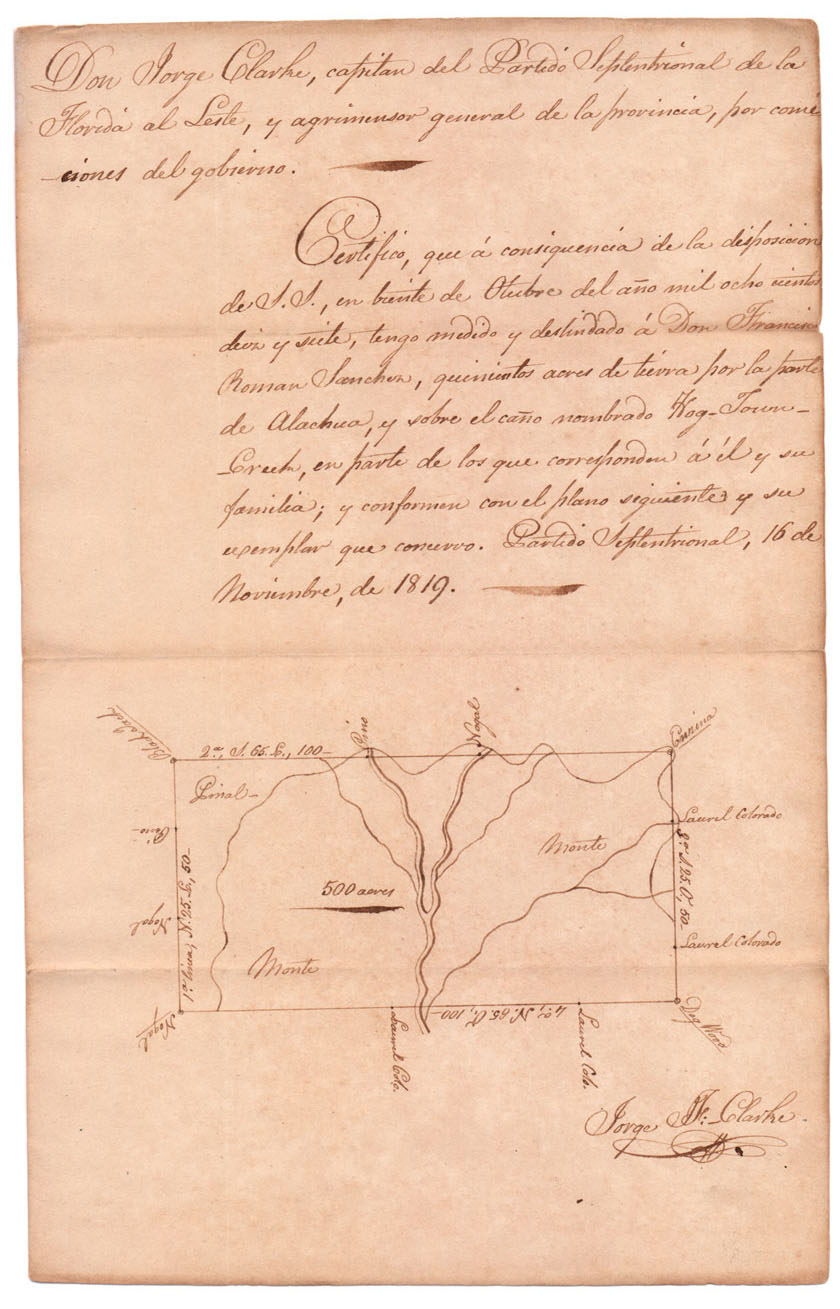 Don Jorge Clarke, capitan del Partido Septentrional de la
Florida al Leste, y agrimensor general de la provincia, por comi
-ciones del gobierno.
Certifico, que á consiquencia de la disposicion
de S. S., en biente de Otubre del año mil ocho cientos
deiz y siete, tengo medido y deslindado á Don Francisco
Roman Sanchez, quinientos acres de tierra por la parte
de Alachua, y sobre el caño nombrado Hog-Town-
Creek, en parte de los que corresponden á él y su
familia; y conformen con el plano siguiente y su
exemplar que concervo. Partido Septentrional, 16 de
Noviembre, de 1819.
Black Jack
2ª, S. 65. E., 100-
Pino
Nogal
Encina
Pinal-
Laurel Colorado
Pino-
Monte
3ª S. 25. O., 50-
500 acres
1ª linea, N. 25. E., 50-
Nogal
Laurel Colorado
Monte
Nogal
4ª, N. 65. O., 100-
Dog Wood
Laurel Colo.
Laurel Colo.
Jorge J. F. Clarke.